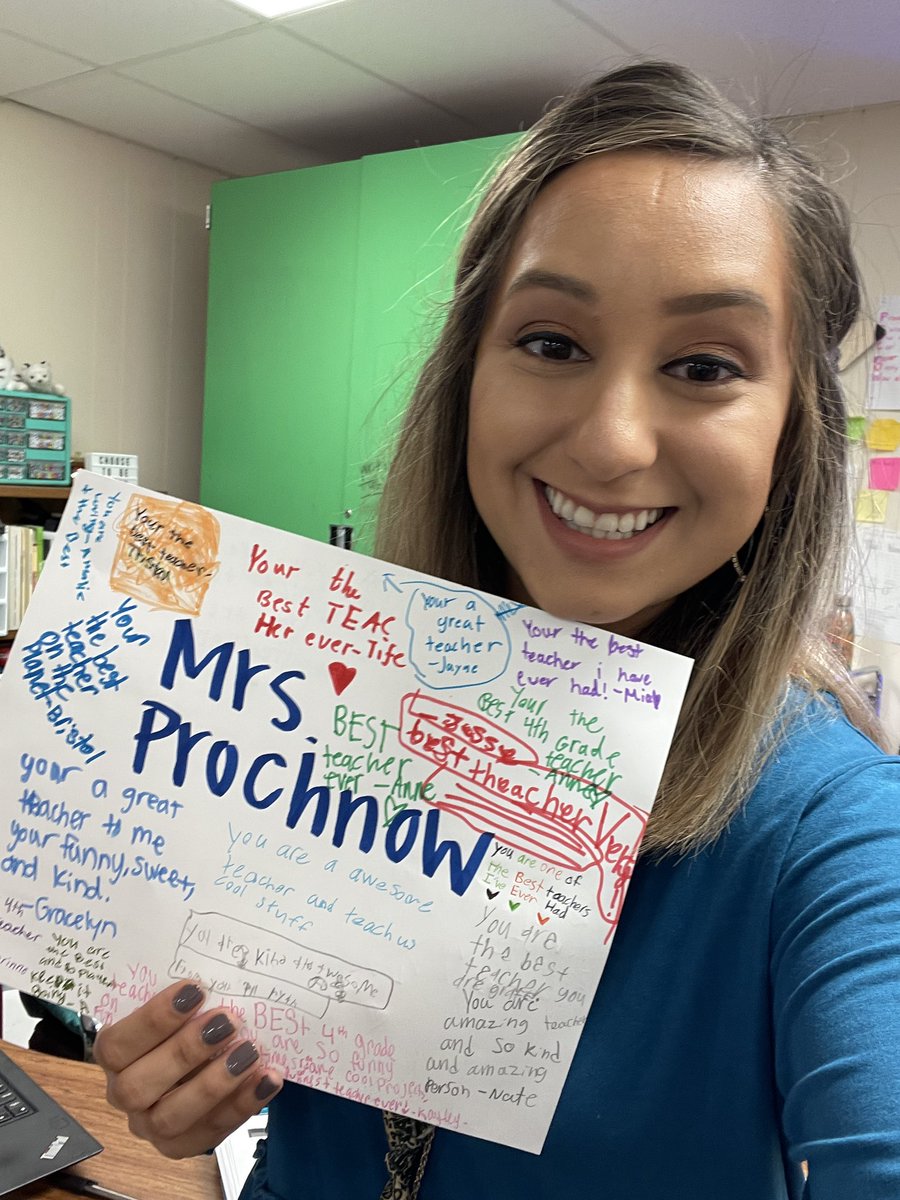 CHOOSE
TO BE
You are
loving-
& the Best
Your the
best teacher
Your the
Best TEAC
Her ever-Tife
your a
great
teacher
-Jayne
Your the best
teacher i have
ever had!
Your the
Best 4th Grade
teacher
Jesse
best theacher
Your
the best
teacher
on the
planet-Bristol
Mrs.
Prochnow
BEST
teacher
ever -Anne
your a great
teacher to me
your funny, sweet,
and kind.
-Gracelyn
you are a awesome
teacher and teach us
cool
stuff
you are one of
the Best teachers
I've Ever Had
You are
the best
teacher you
are great
You are
amazing teacher
and so kind
and amazing
Person -Nate
4th
teacher
you are
the Best
keep it
you
the BEST 4th grade
are so funny
cool Project
teacher ever
ThinkPad